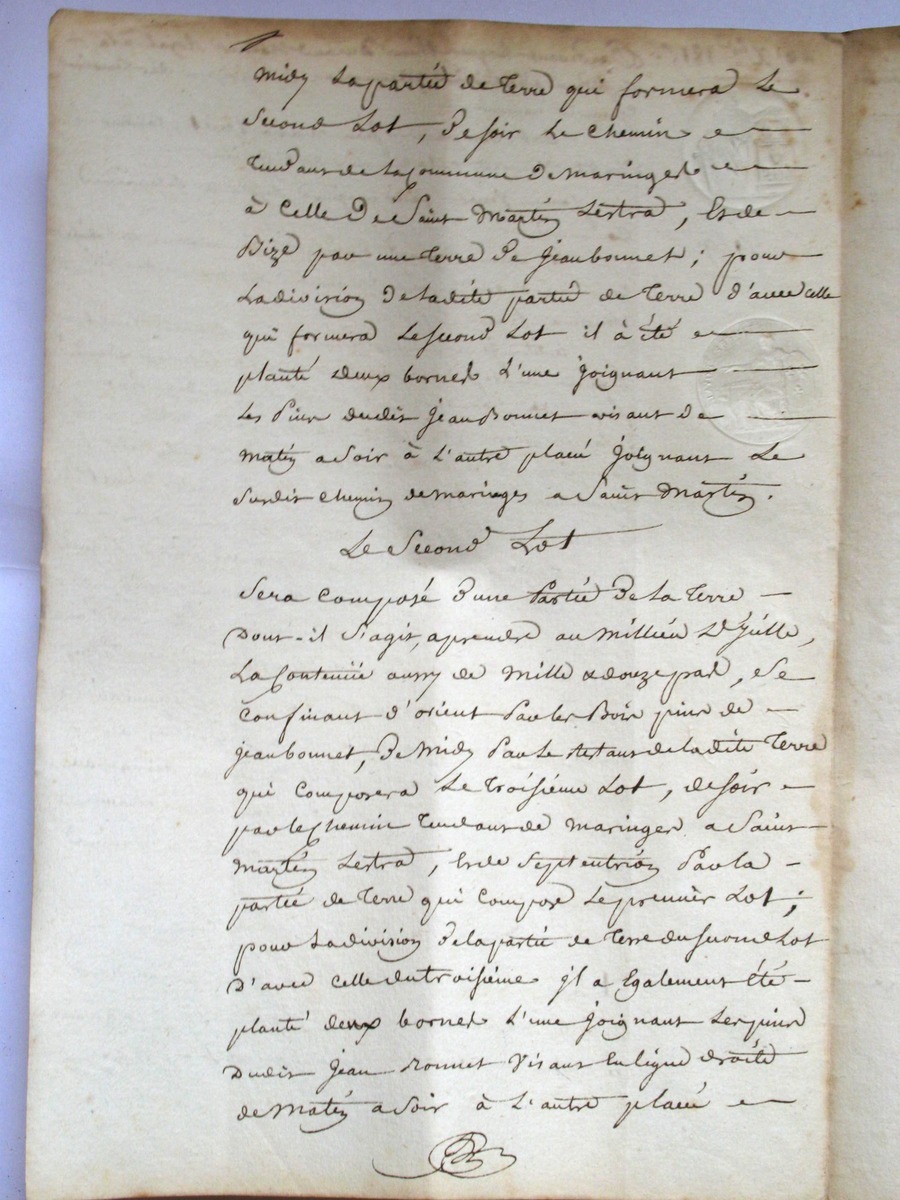 midy la partië de terre qui formera le
second Lot, De soir le chemin
tendant de la Commune De maringes
à celle De Saint Martin Lestra, Et de
Bize par une terre De Jean bonnet ; pour
La division De la dite partië de terre d'avec celle
qui formera le second Lot il à été
planté deux bornes L'une joignant
Les Pins dudit Jean Bonnet visant de
matin a Soir à L'autre placé joignant Le
Susdit chemin de maringes a Saint Martin.
Le Second Lot
Sera composé d'une Partië De la Terre
Dont-il s'agit, a prendre au millieu D'ycelle,
La Contenüe aussy de Mille & douze pas, & Se
confinant d'orient Par les Bois pins de
jean bonnet, De Midy Par Le restant de la dite Terre
qui Composera Le troisième Lot, de soir
par le Chemin tendant de maringes a Saint
Martin Lestra, Et de Septentrion Par la
partië de terre qui compose Le premier Lot ;
pour La division De la partië de terre du second Lot
D'avec celle du troisième jl a Egalement été
planté deux bornes L'une joignant Les pins
Dudit Jean Bonnet Visant En ligne droite
de Matin a Soir à L'autre placé